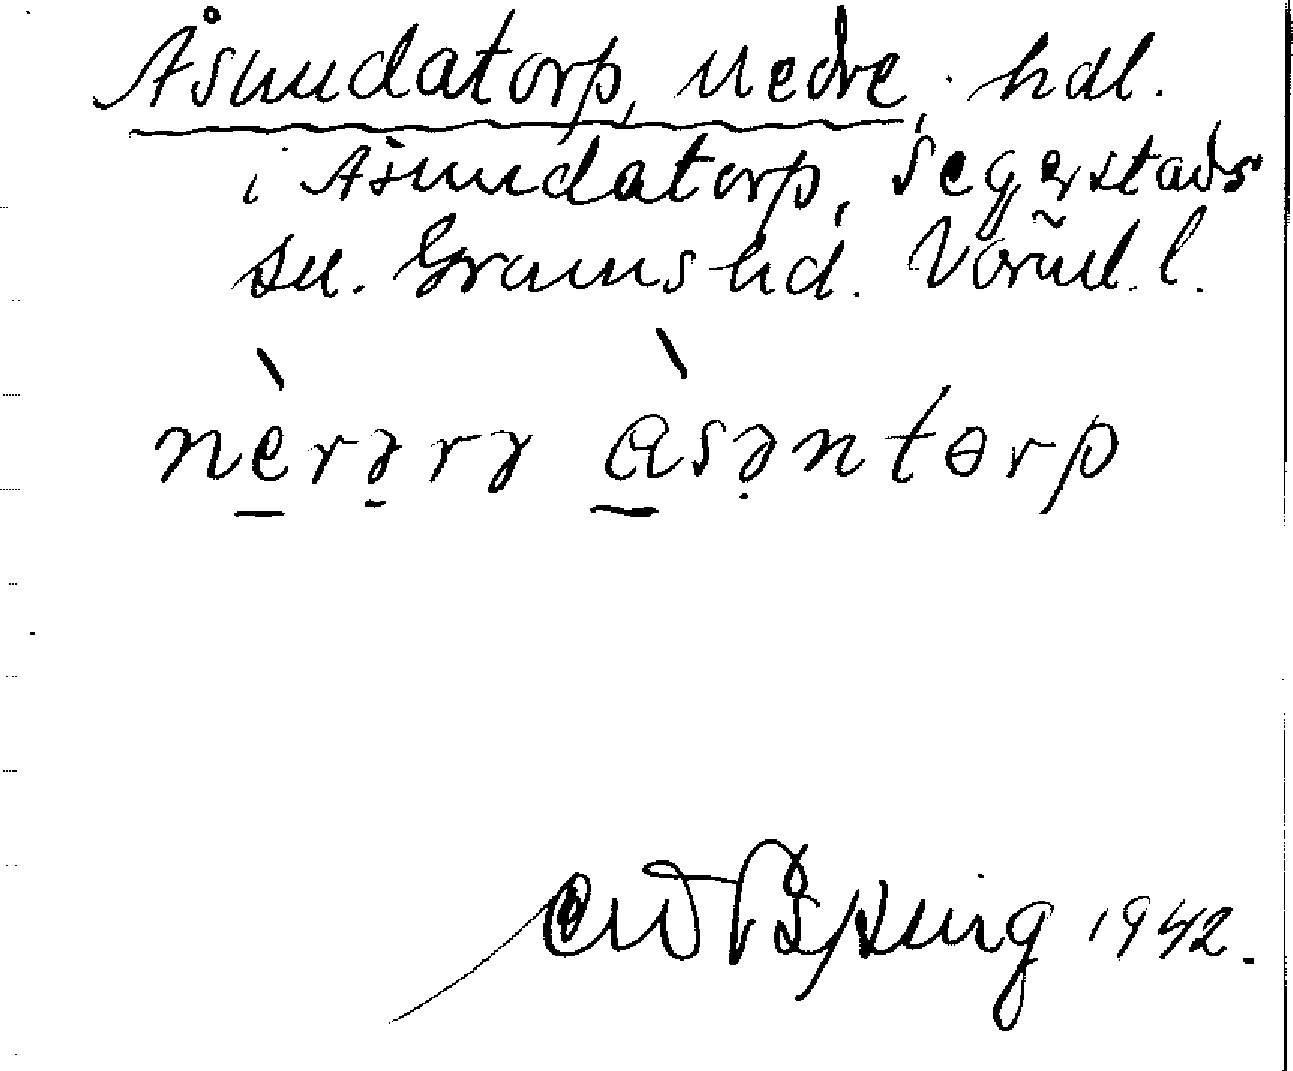 Åsmudatorp, Nedre, hdl.
i Åsmudatorp, Segerstads
sn. Grums hd. Värml. l.
nèrərə àsəntɵrp
1942.